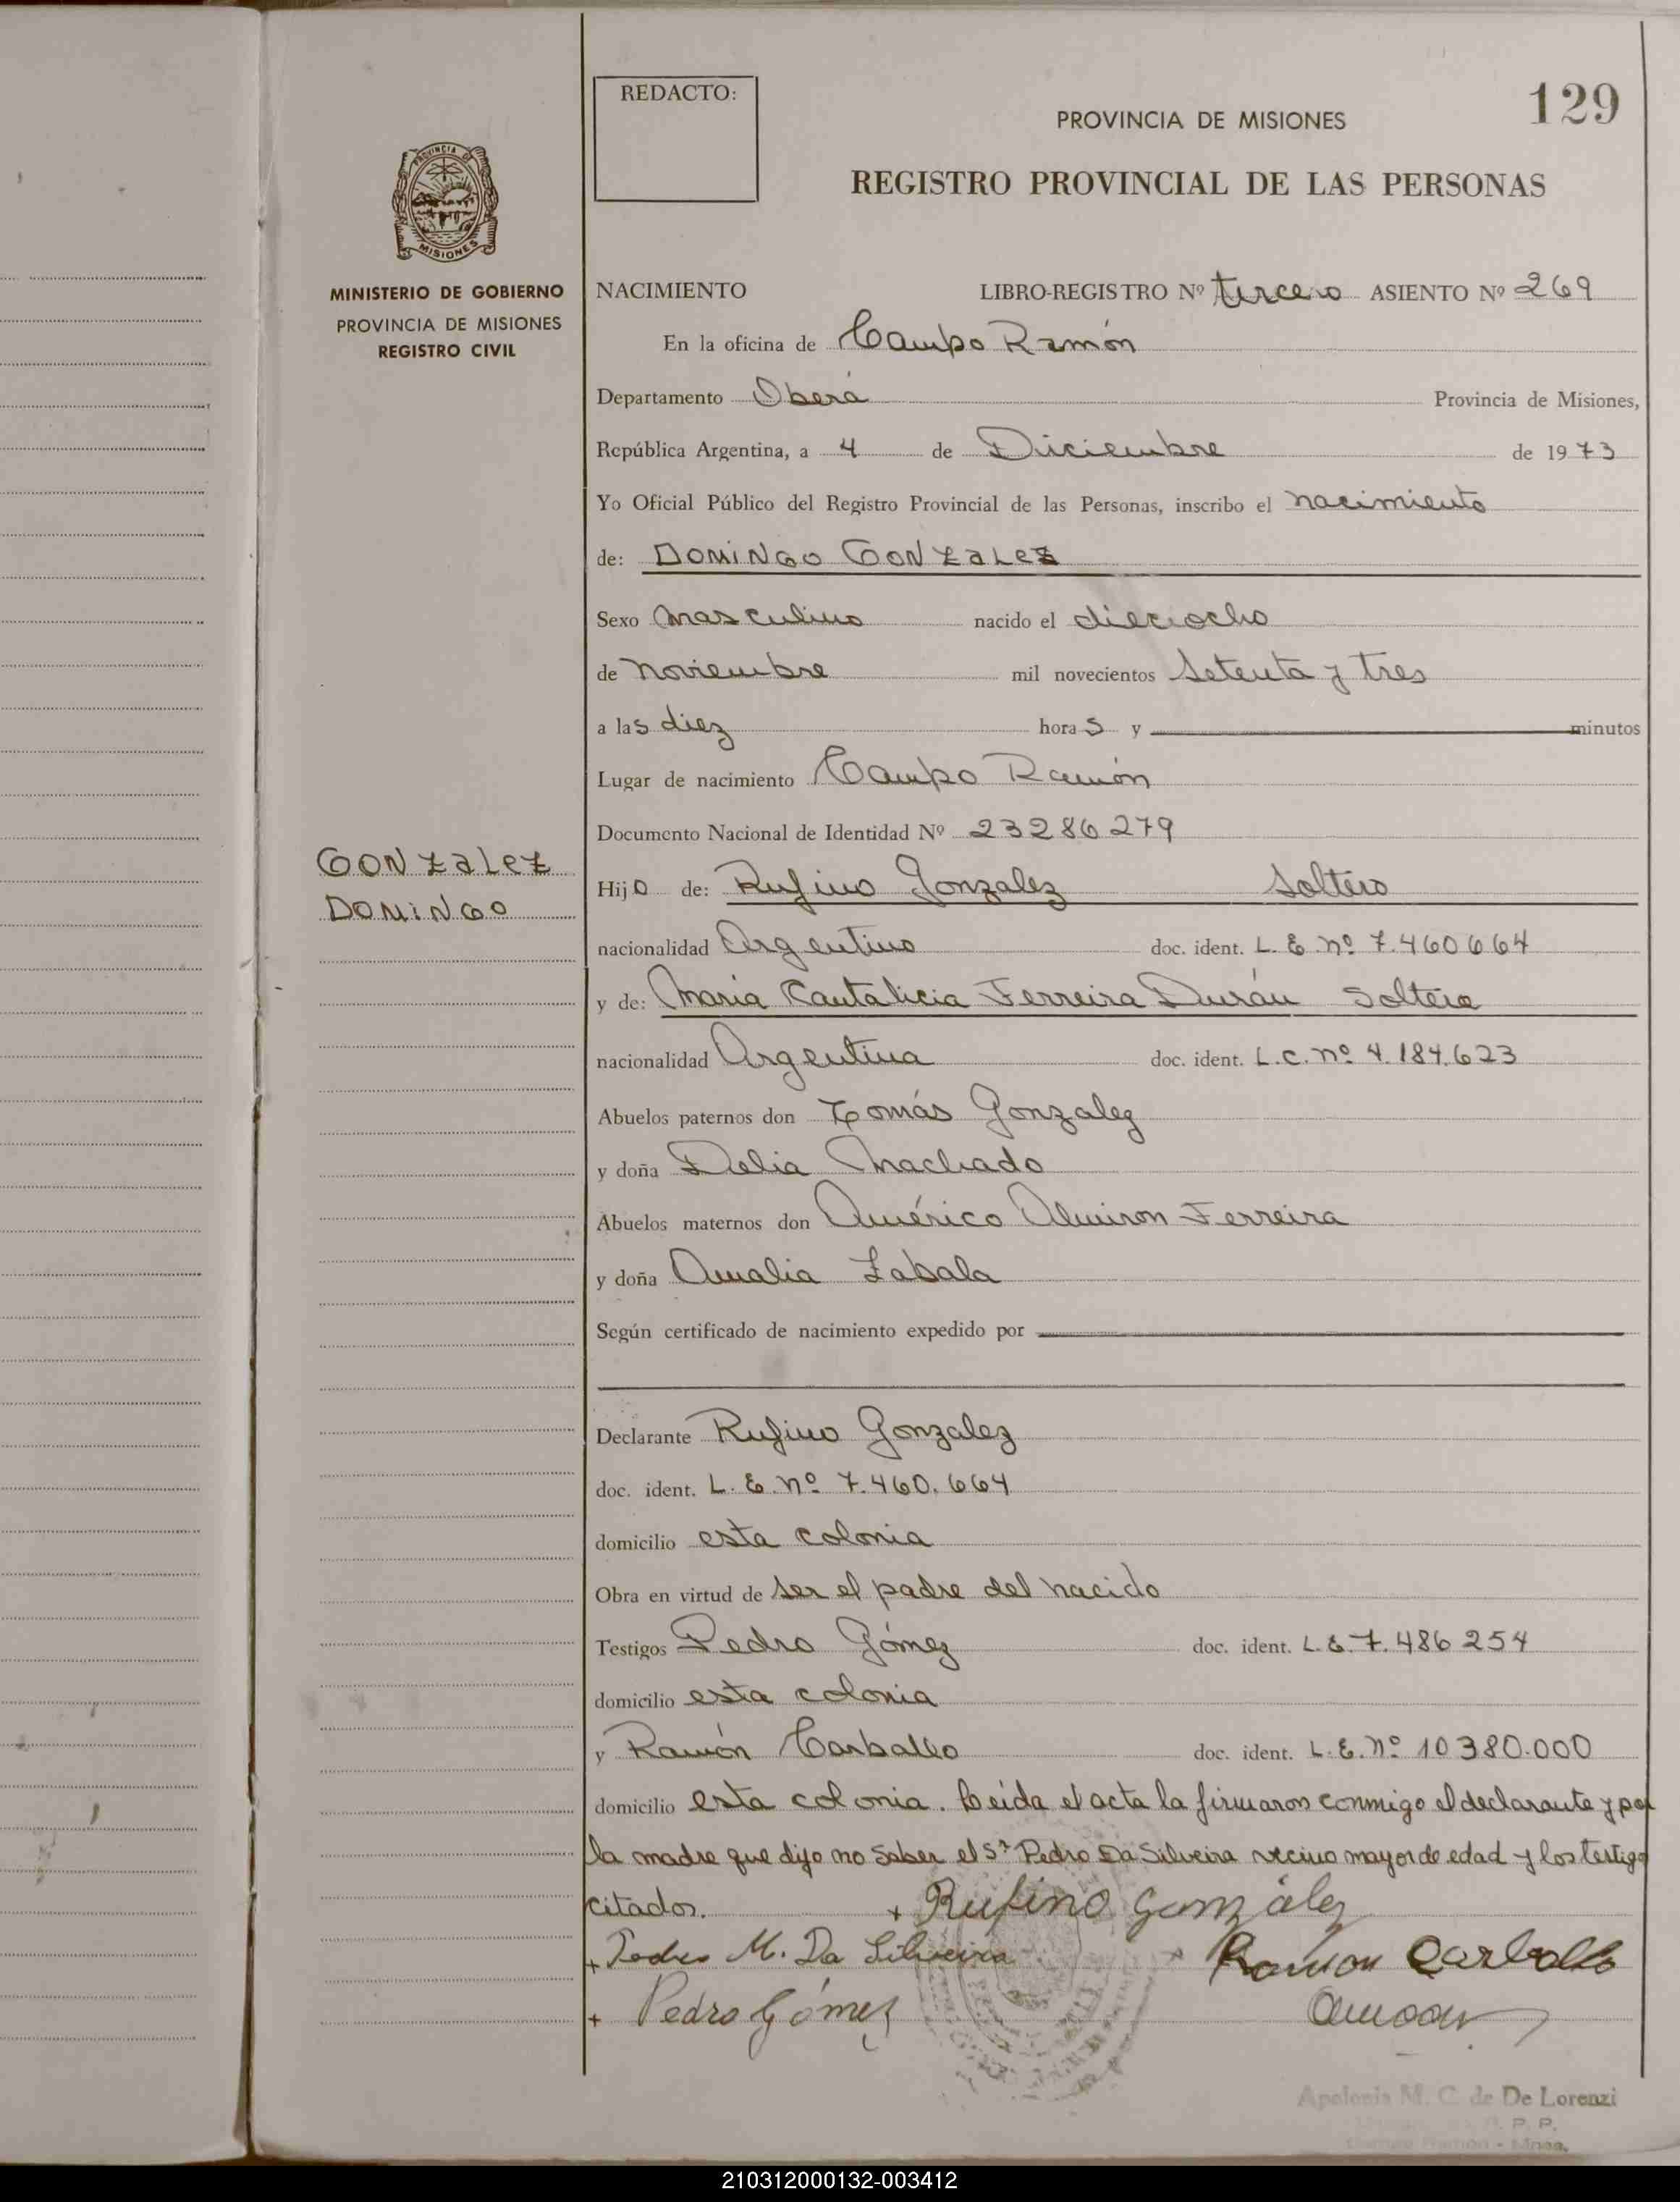 REDACTO:
129
PROVINCIA DE MISIONES
REGISTRO PROVINCIAL DE LAS PERSONAS
PROVINCIA DE
MISIONES
MINISTERIO DE GOBIERNO
PROVINCIA DE MISIONES
REGISTRO CIVIL
NACIMIENTO LIBRO-REGISTRO Nº tercero ASIENTO Nº 269
En la oficina de Campo Ramón
Departamento Oberá Provincia de Misiones,
República Argentina, a 4 de Diciembre de 1973
Yo Oficial Público del Registro Provincial de las Personas, inscribo el nacimiento
de: DOMINGO GONZALEZ
Sexo masculino nacido el dieciocho
de noviembre mil novecientos setenta y tres
a las diez horas y minutos
Lugar de nacimiento Campo Ramón
Documento Nacional de Identidad Nº 23286279
GONZALEZ
DOMINGO
Hijo de: Rufino Gonzalez soltero
nacionalidad Argentino doc. ident. L. E. nº 7.460664
y de: Maria Cantalicia Ferreira Durán soltera
nacionalidad Argentina doc. ident. L.C. nº 4.184.623
Abuelos paternos don Tomás Gonzalez
y doña Delia Machado
Abuelos maternos don Américo Almiron Ferreira
y doña Amalia Zabala
Según certificado de nacimiento expedido por
Declarante Rufino Gonzalez
doc. ident. L. E. nº 7.460.664
domicilio esta colonia
Obra en virtud de ser el padre del nacido
Testigos Pedro Gómez doc. ident. L.E. 7.486254
domicilio esta colonia
y Ramón Carballo doc. ident. L.E. nº 10380.000
domicilio esta colonia. Leída el acta la firmaron conmigo el declarante y por
la madre que dijo no saber el Sr Pedro Da Silveira vecino mayor de edad y los testigo
citados. + Rufino Gonzalez
+ Pedro M. Da Silveira Ramon Carballo
+ Pedro Gómez
Apolonia M. C. de De Lorenzi
P. P.
Campo Ramón - Mnes.
210312000132-003412